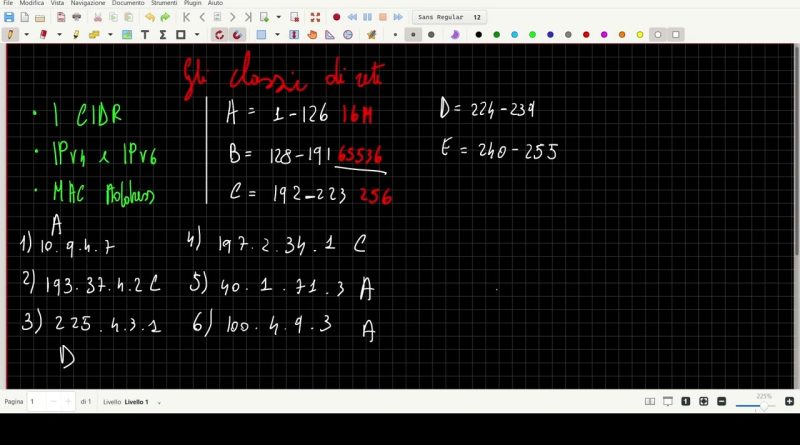 File Modifica Vista Navigazione Documento Strumenti Plugin Aiuto
Sans Regular 12
Gli classi di reti
• I CIDR
• IPv4 e IPv6
• MAC Address
A = 1-126 16M
B = 128-191 65536
C = 192-223 256
D = 224-239
E = 240-255
A
1) 10.9.4.7
2) 193.37.4.2 C
3) 225.4.3.1
D
4) 197.2.34.1 C
5) 40.1.71.3 A
6) 100.4.9.3 A
Pagina 1 di 1 Livello Livello 1
225%